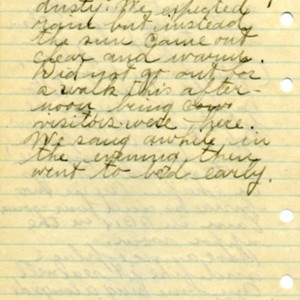 dusty. We expected
rain but instead
the sun came out
clear and warm.
Did not go out for
a walk this after-
noon being
visitors were here.
We sang awhile in
the evening then
went to bed early.